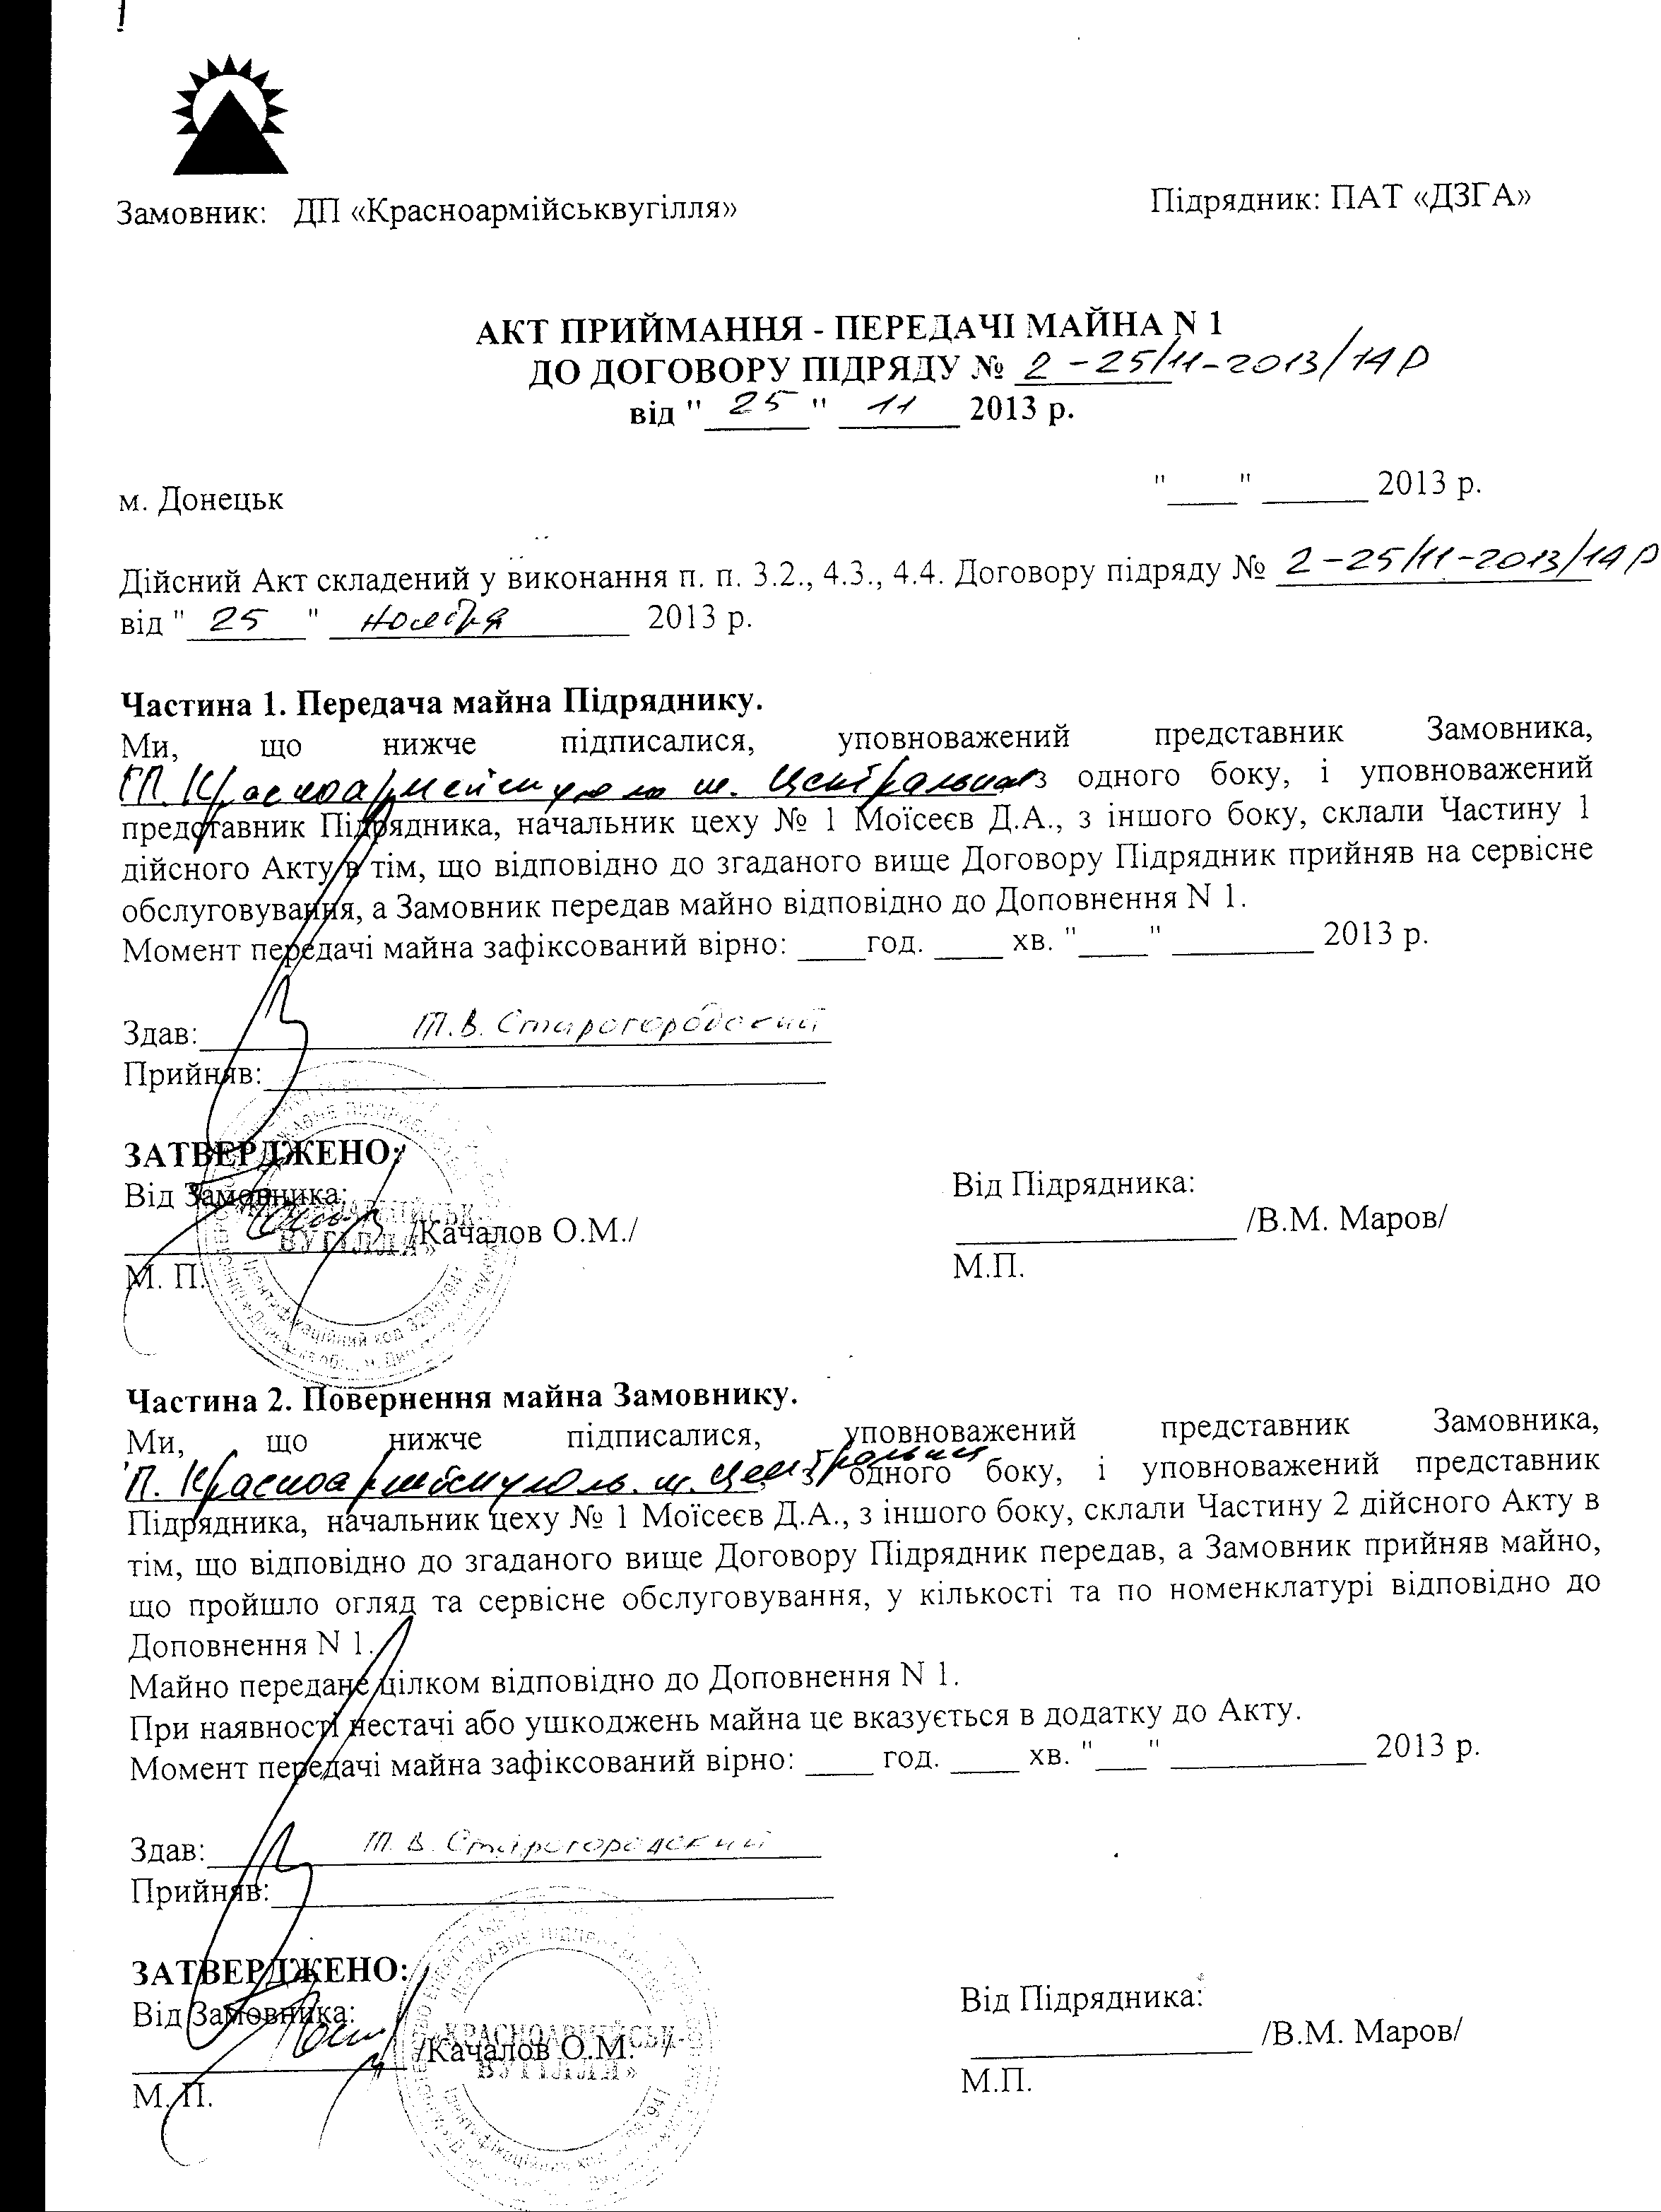 Замовник: ДП «Красноармійськвугілля»
Підрядник: ПАТ «ДЗГА»
АКТ ПРИЙМАННЯ - ПЕРЕДАЧІ МАЙНА N 1
ДО ДОГОВОРУ ПІДРЯДУ № 2-25/11-2013/14Р
від " 25 " 11 2013 р.
м. Донецьк
"____" ______ 2013 р.
Дійсний Акт складений у виконання п. п. 3.2., 4.3., 4.4. Договору підряду № 2-25/11-2013/14Р
від " 25 " ноября 2013 р.
Частина 1. Передача майна Підряднику.
Ми, що нижче підписалися, уповноважений представник Замовника,
ГП. Красноармейскуголь ш. Центральная з одного боку, і уповноважений
представник Підрядника, начальник цеху № 1 Моїсеєв Д.А., з іншого боку, склали Частину 1
дійсного Акту в тім, що відповідно до згаданого вище Договору Підрядник прийняв на сервісне
обслуговування, а Замовник передав майно відповідно до Доповнення N 1.
Момент передачі майна зафіксований вірно: ____год. ____ хв. "____" ________ 2013 р.
Здав: Т.В. Старогородский
Прийняв:
ЗАТВЕРДЖЕНО:
Від Замовника:
/Качалов О.М./
М. П.
Від Підрядника:
/В.М. Маров/
М.П.
Частина 2. Повернення майна Замовнику.
Ми, що нижче підписалися, уповноважений представник Замовника,
П. Красноармейскуголь. ш. Центральная, з одного боку, і уповноважений представник
Підрядника, начальник цеху № 1 Моїсеєв Д.А., з іншого боку, склали Частину 2 дійсного Акту в
тім, що відповідно до згаданого вище Договору Підрядник передав, а Замовник прийняв майно,
що пройшло огляд та сервісне обслуговування, у кількості та по номенклатурі відповідно до
Доповнення N 1.
Майно передане цілком відповідно до Доповнення N 1.
При наявності нестачі або ушкоджень майна це вказується в додатку до Акту.
Момент передачі майна зафіксований вірно: ____ год. ____ хв. "___" ___________ 2013 р.
Здав: Т.В. Старогородский
Прийняв:
ЗАТВЕРДЖЕНО:
Від Замовника:
/Качалов О.М. /
М. П.
«КРАСНОАРМІЙСЬК-
ВУГІЛЛЯ»
Від Підрядника:
/В.М. Маров/
М.П.